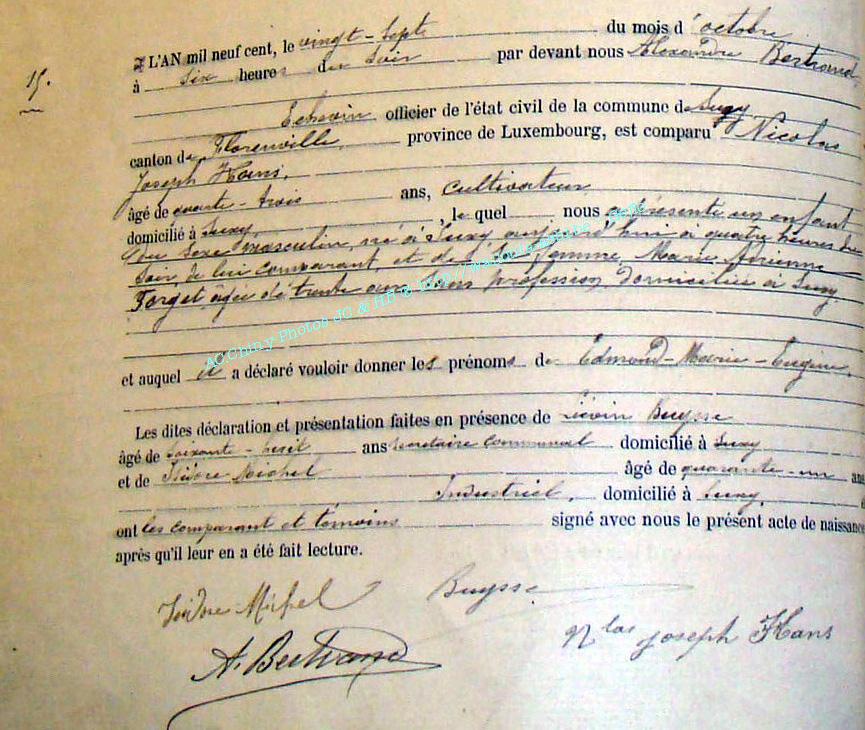 15.
L'AN mil neuf cent, le vingt-sept du mois d'octobre
à six heures du soir par devant nous Alexandre Bertrand,
Echevin officier de l'état civil de la commune de Suxy
canton de Florenville province de Luxembourg, est comparu Nicolas
Joseph Hans,
âgé de quarante-trois ans, cultivateur
domicilié à Suxy, le quel nous a présenté un enfant
du sexe masculin, né à Suxy aujourd'hui à quatre heures du
soir, de lui comparant, et de sa femme, Marie Adrienne
Forget âgée de trente ans sans profession, domiciliée à Suxy
ACChiny Photos JC & HB © http://
et auquel il a déclaré vouloir donner les prénoms de Edmond-Marie-Eugène.
Les dites déclaration et présentation faites en présence de Liévin Buysse
âgé de soixante-huit ans secrétaire communal domicilié à Suxy
et de Isidore Michel âgé de quarante-un ans
Industriel, domicilié à Suxy,
ont les comparant et témoins signé avec nous le présent acte de naissance
après qu'il leur en a été fait lecture.
Isidore Michel Buysse
A. Bertrand Nlas Joseph Hans